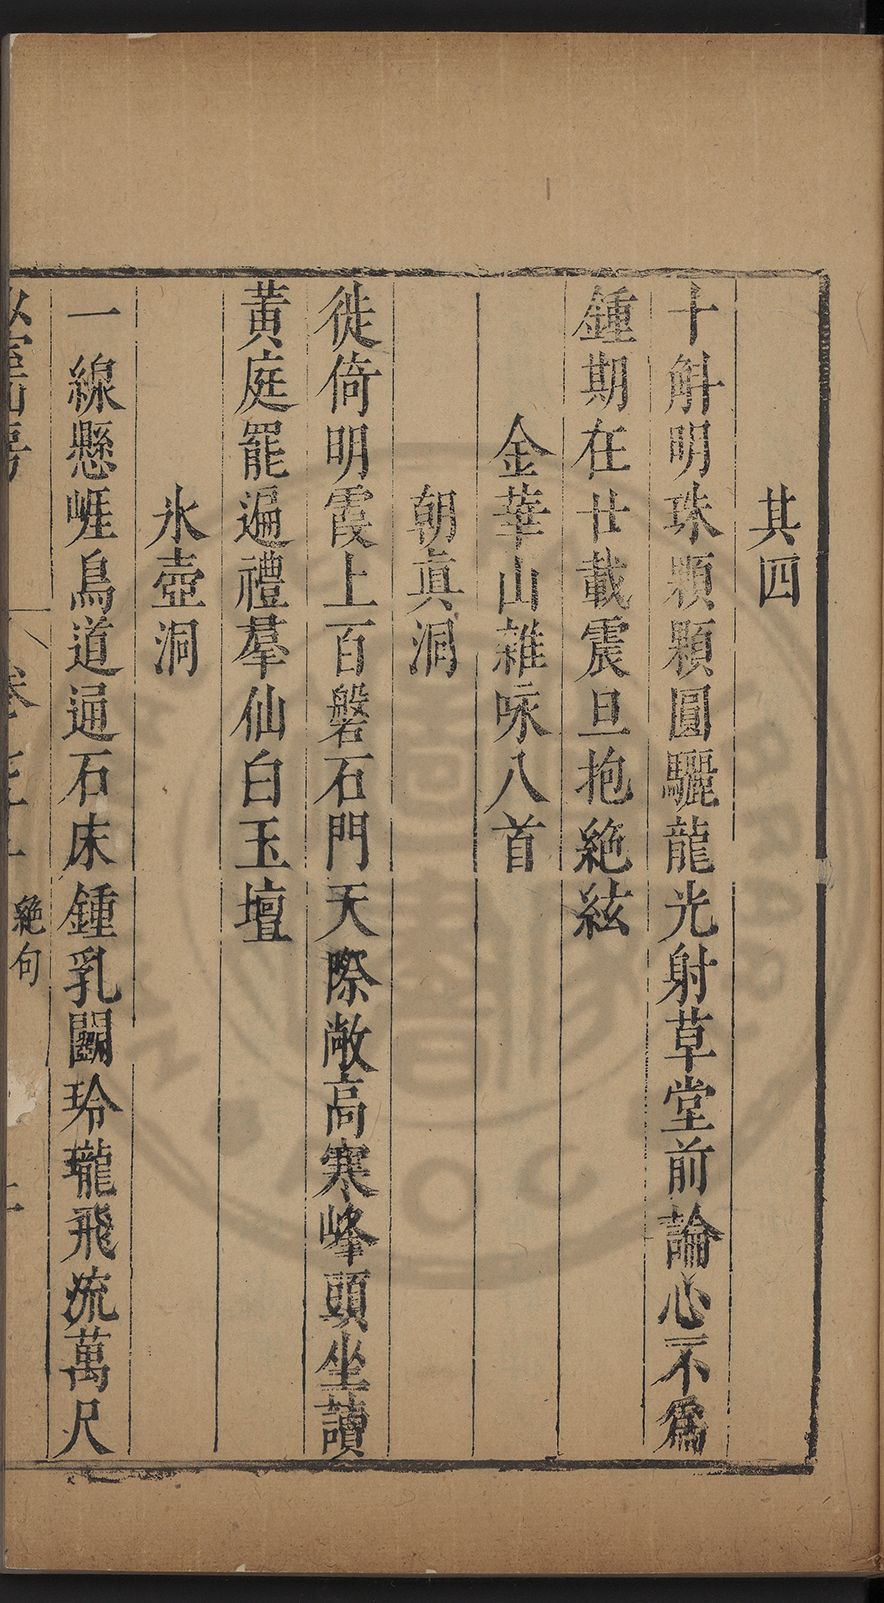 其四
十斛明珠顆顆圓驪龍光射草堂前論心不為
鍾期在廿載震旦抱絕絃
金華山雜咏八首
朝真洞
徙倚明霞上百磐石門天際敞高寒峰頭坐讀
黃庭罷遍禮羣仙白玉壇
氷壺洞
一線懸崕鳥道通石床鍾乳闢玲瓏飛流萬尺
卷之 絕句